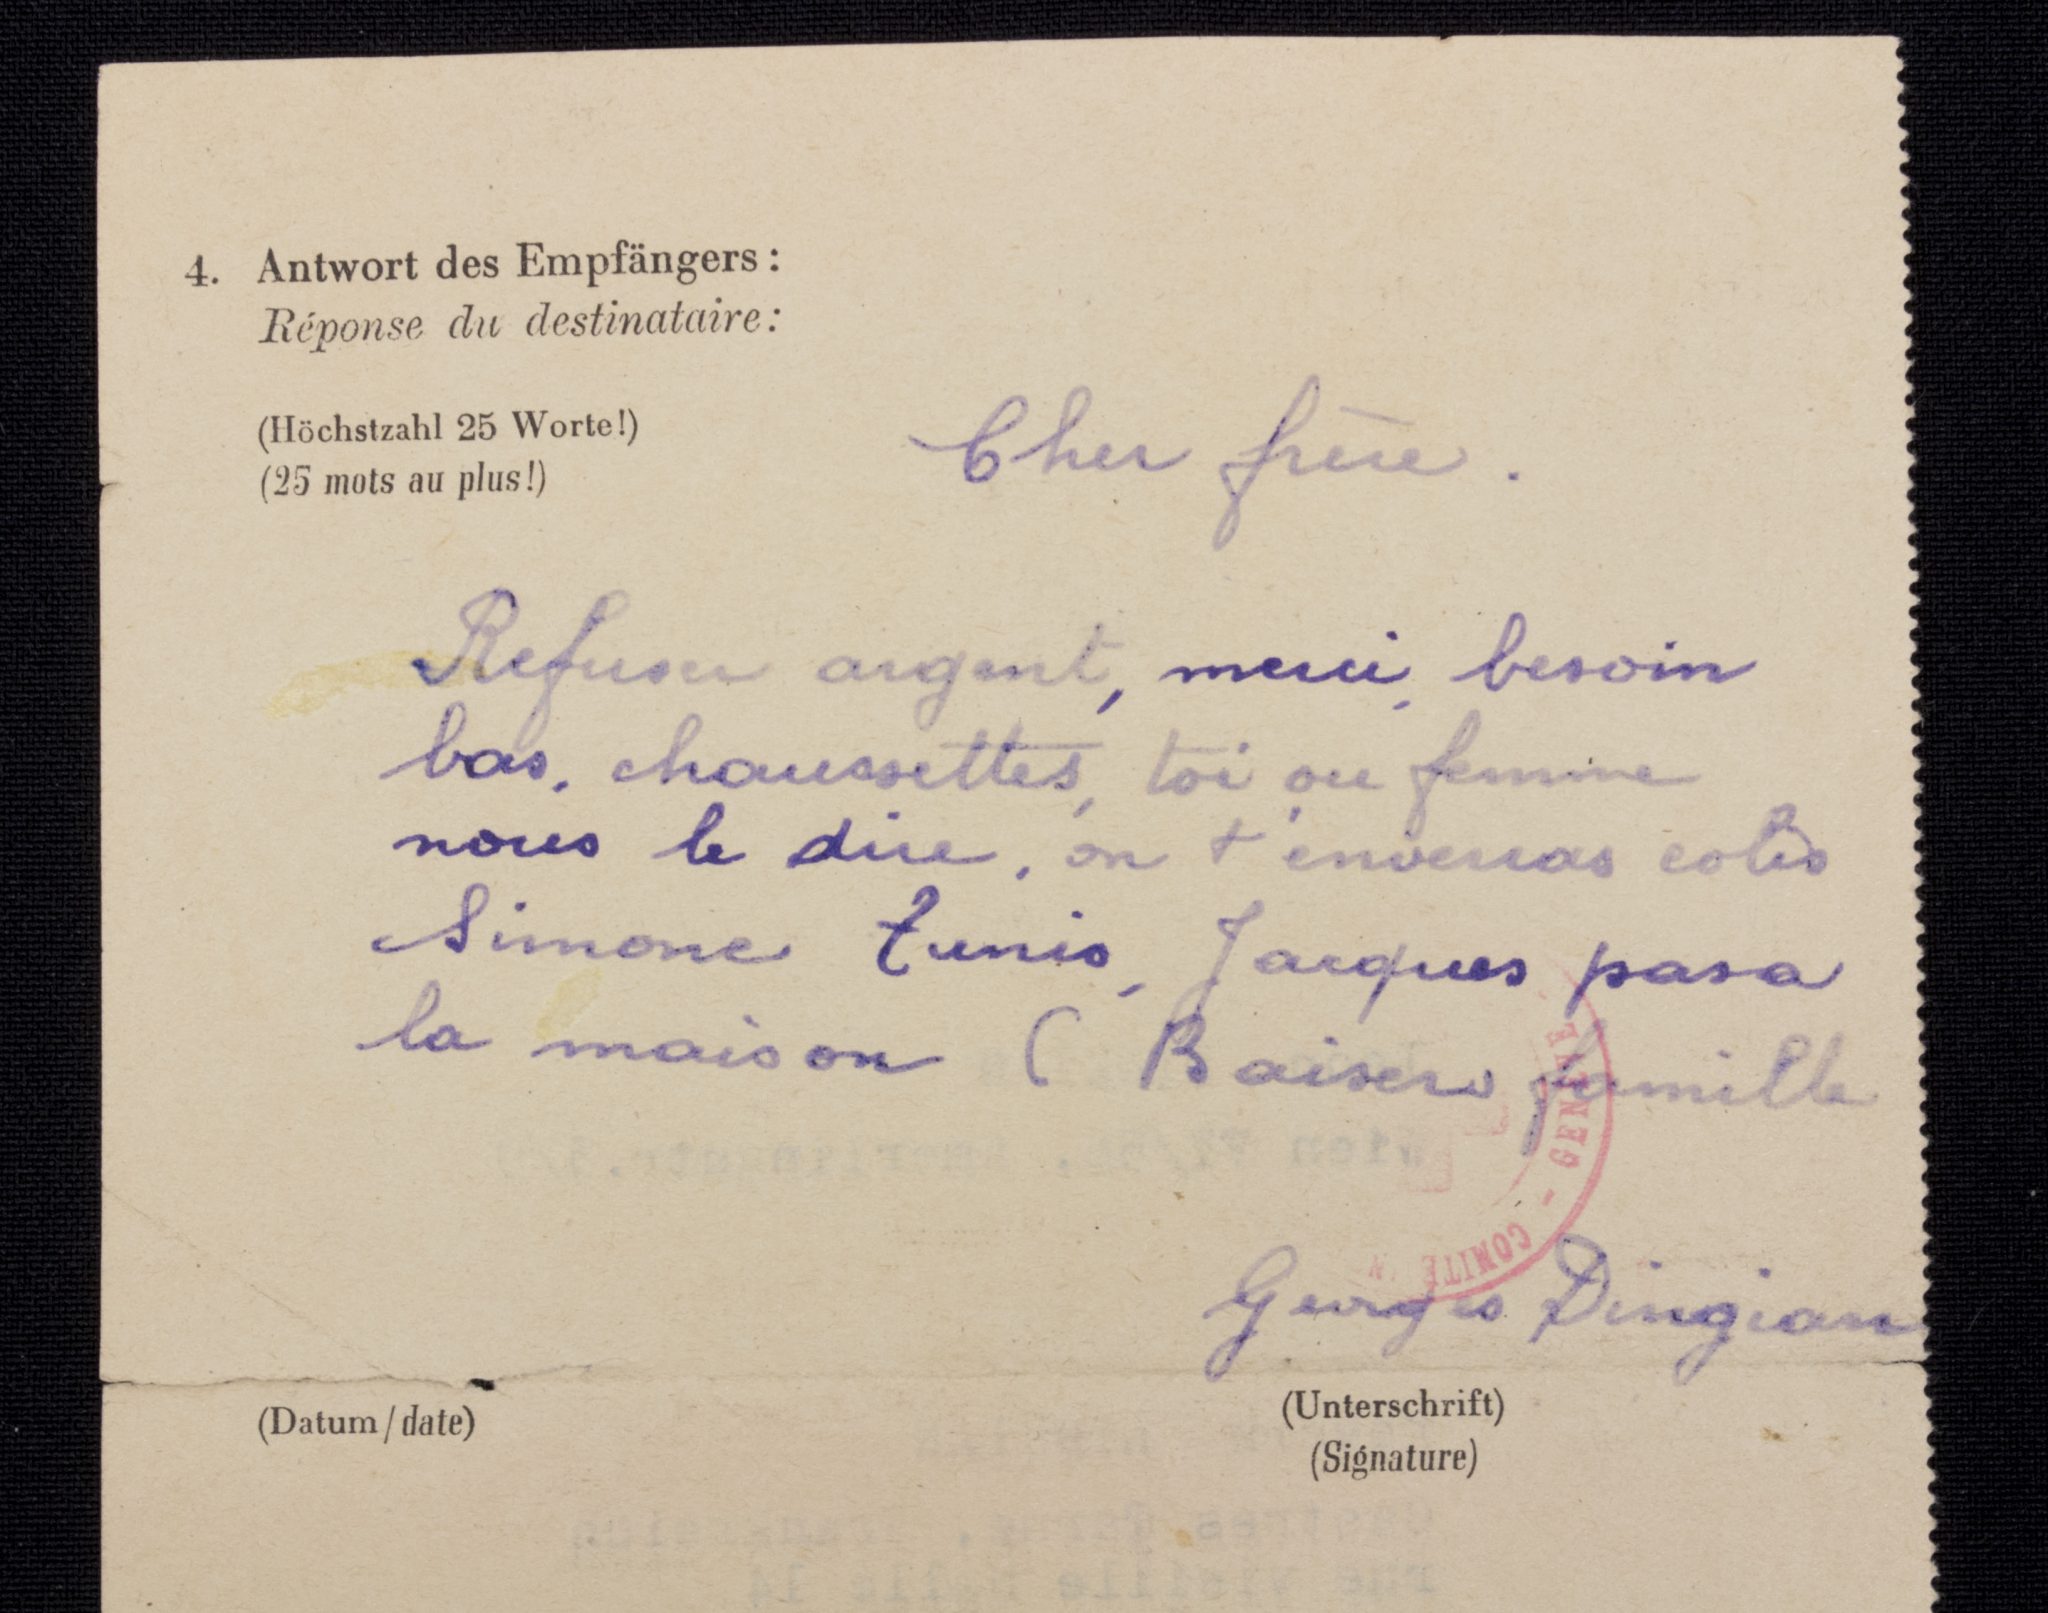 4. Antwort des Empfängers:
Réponse du destinataire:
(Höchstzahl 25 Worte!)
(25 mots au plus!)
Cher frère.
Refuser argent, merci, besoin
bas, chaussettes, toi ou femme
nous le dire, on t'enverras colis
Simone Tunis, Jacques pasa
la maison ( Baisers famille
GENÈVE - COMITÉ
Georges Dingian
(Datum/date)
(Unterschrift)
(Signature)